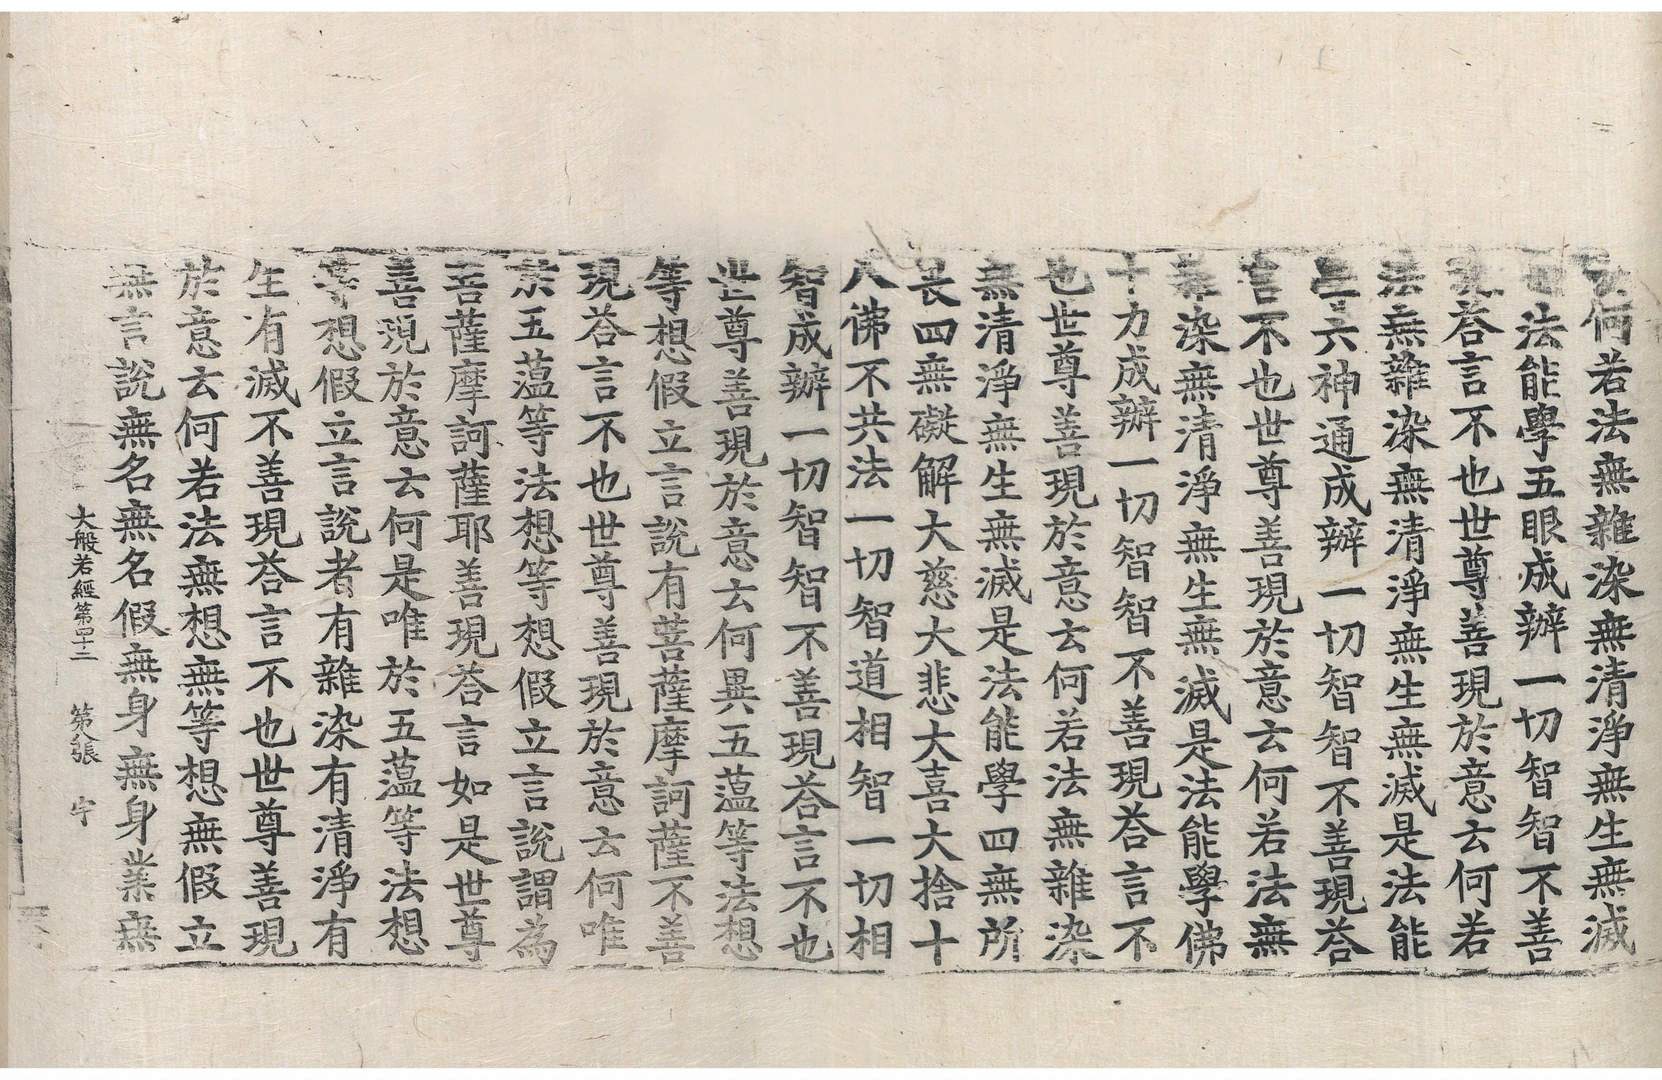 云何若法無雜染無清淨無生無滅
是法能學五眼成辦一切智智不善
現荅言不也世尊善現於意云何若
法無雜染無清淨無生無滅是法能
學六神通成辦一切智智不善現荅
言不也世尊善現於意云何若法無
雜染無清淨無生無滅是法能學佛
十力成辦一切智智不善現荅言不
也世尊善現於意云何若法無雜染
無清淨無生無滅是法能學四無所
畏四無礙解大慈大悲大喜大捨十
八佛不共法一切智道相智一切相
智成辦一切智智不善現荅言不也
世尊善現於意云何異五蕰等法想
等想假立言說有菩薩摩訶薩不善
現荅言不也世尊善現於意云何唯
於五蕰等法想等想假立言說謂為
菩薩摩訶薩耶善現荅言如是世尊
善現於意云何是唯於五蕰等法想
等想假立言說者有雜染有清淨有
生有滅不善現荅言不也世尊善現
於意云何若法無想無等想無假立
無言說無名無名假無身無身業無
大般若經第四十二 第八張 宇